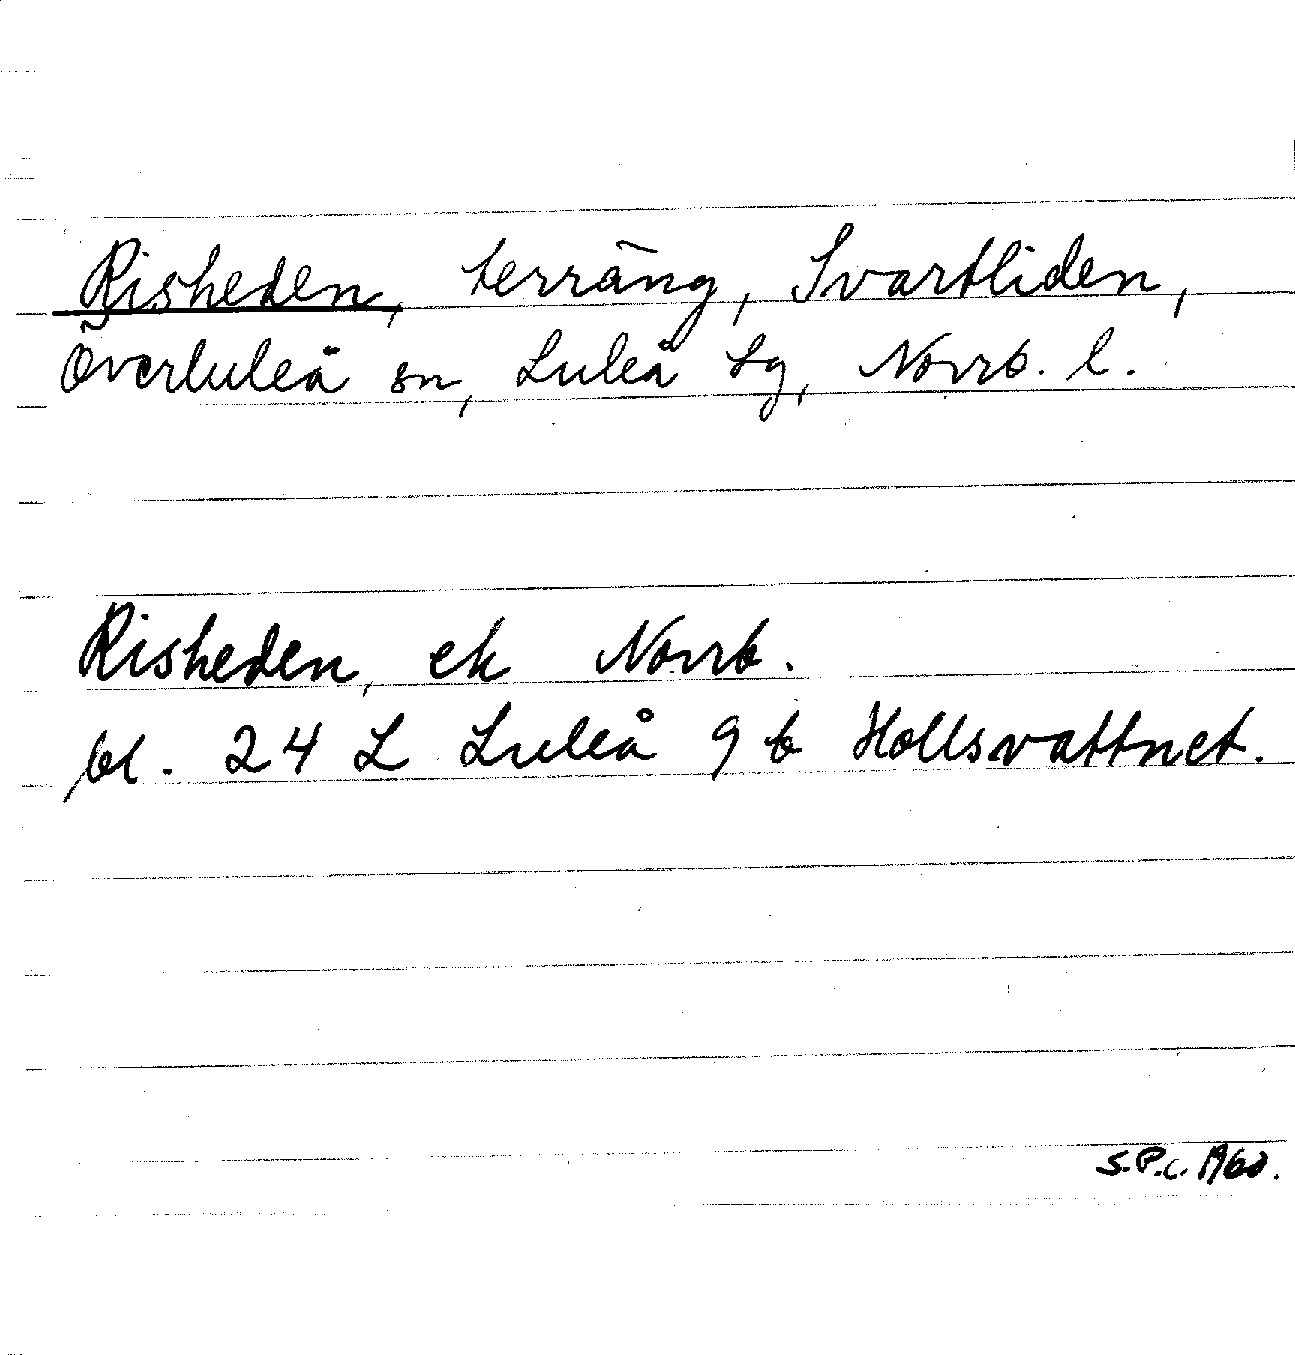 Risheden, terräng, Svartliden,
Överluleå sn, Luleå tg, Norrb. l.
Risheden, ek Norrb.
bl. 24 L Luleå 9 b Hollsvattnet.
S.P.c. 1960.